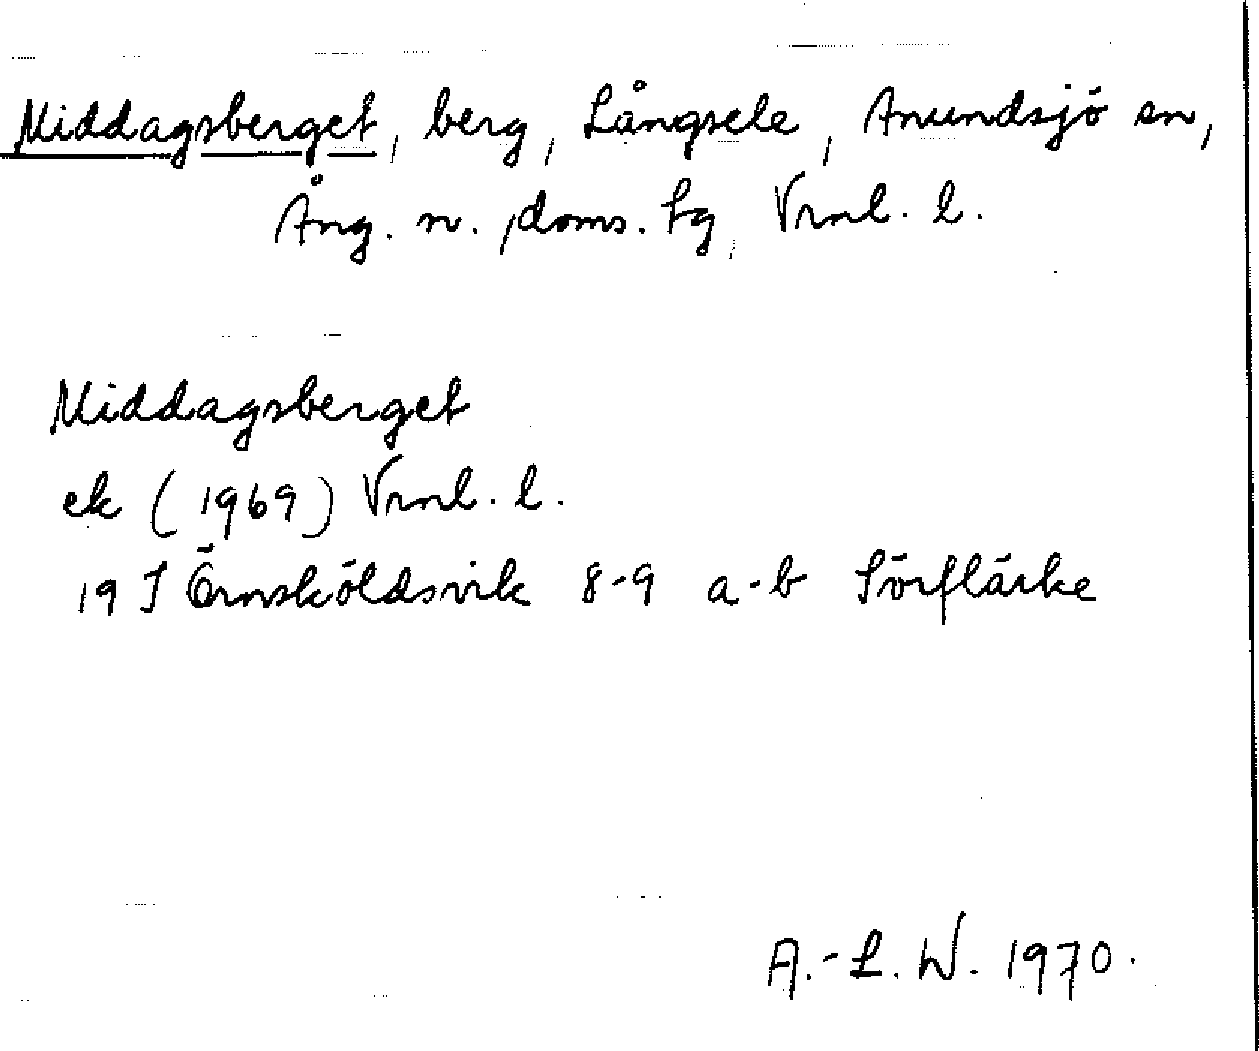 Middagsberget, berg, Långsele, Anundsjö sn,
Ång. n. doms. tg, Vrnl. l.
Middagsberget
ek (1969) Vrnl. l.
19 J Örnsköldsvik 8-9 a-b Sörflärke
A.-L. W. 1970.